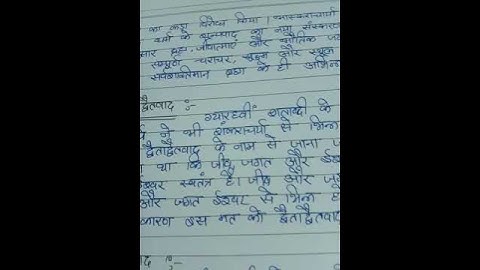 का कड़ा विरोध किया। भास्कराचार्य
का नया संस्करण
सार ब्रह्म, जीवात्माएं और भौतिक
सम्पूर्ण चराचर, सूक्ष्म और स्थूल
सर्वशक्तिमान ब्रह्म के ही अभिन्न
द्वैतवाद :-
ग्यारहवीं शताब्दी के
ने भी शंकराचार्य से भिन्न
द्वैताद्वैतवाद के नाम से जाना
था कि जीव, जगत और ईश्वर
ईश्वर स्वतंत्र है। जीव और
और जगत ईश्वर से भिन्न
कारण इस मत को द्वैताद्वैतवाद
वाद :-